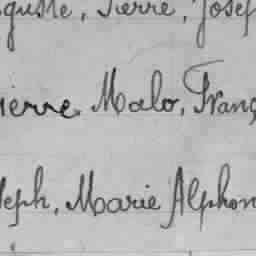 guste, Pierre, Josep
ierre Malo, Franç
seph, Marie Alphon